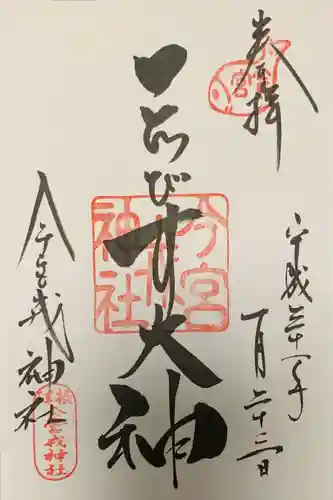 奉拝
平成三十一年
一月二十三日
ゑびす大神
今宮
神社
今宮戎神社